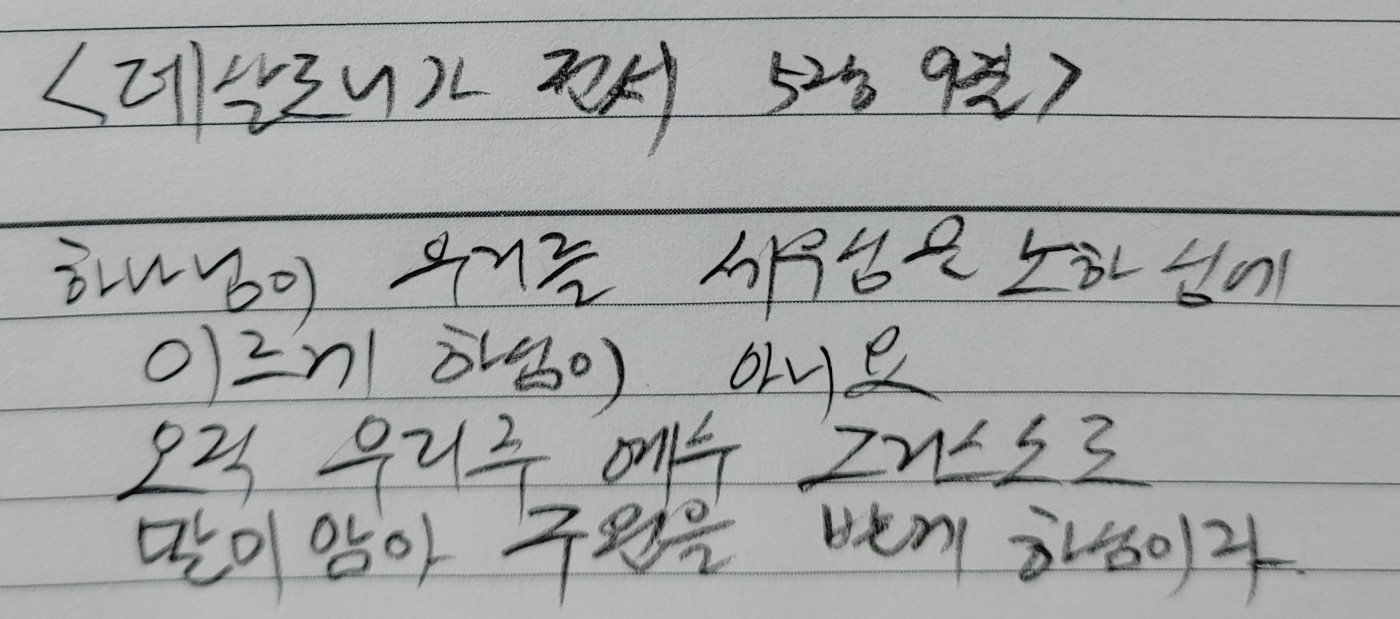 <데살로니가 전서 5장 9절>
하나님이 우리를 세우심은 노하심에
이르게 하심이 아니요
오직 우리주 예수 그리스도로
말미암아 구원을 받게 하심이라.